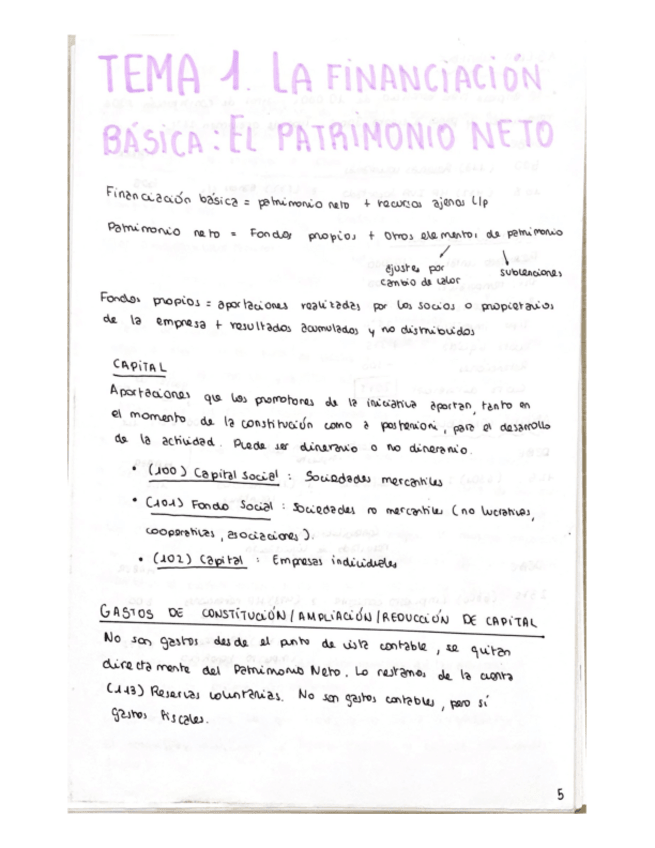 TEMA 1. LA FINANCIACIÓN
BÁSICA: EL PATRIMONIO NETO
Financiación básica = patrimonio neto + recursos ajenos L/p
Patrimonio neto = Fondos propios + otros elementos de patrimonio
ajustes por
cambio de valor
subvenciones
Fondos propios = aportaciones realizadas por los socios o propietarios
de la empresa + resultados acumulados y no distribuidos
CAPITAL
Aportaciones que los promotores de la iniciativa aportan, tanto en
el momento de la constitución como a posteriori, para el desarrollo
de la actividad. Puede ser dinerario o no dinerario.
• (100) Capital social : Sociedades mercantiles
• (101) Fondo Social : Sociedades no mercantiles (no lucrativas,
cooperativas, asociaciones).
• (102) Capital : Empresas individuales
GASTOS DE CONSTITUCIÓN/AMPLIACIÓN/REDUCCIÓN DE CAPITAL
No son gastos desde el punto de vista contable, se quitan
directamente del Patrimonio Neto. Lo restamos de la cuenta
(113) Reservas voluntarias. No son gastos contables, pero sí
gastos fiscales.
5